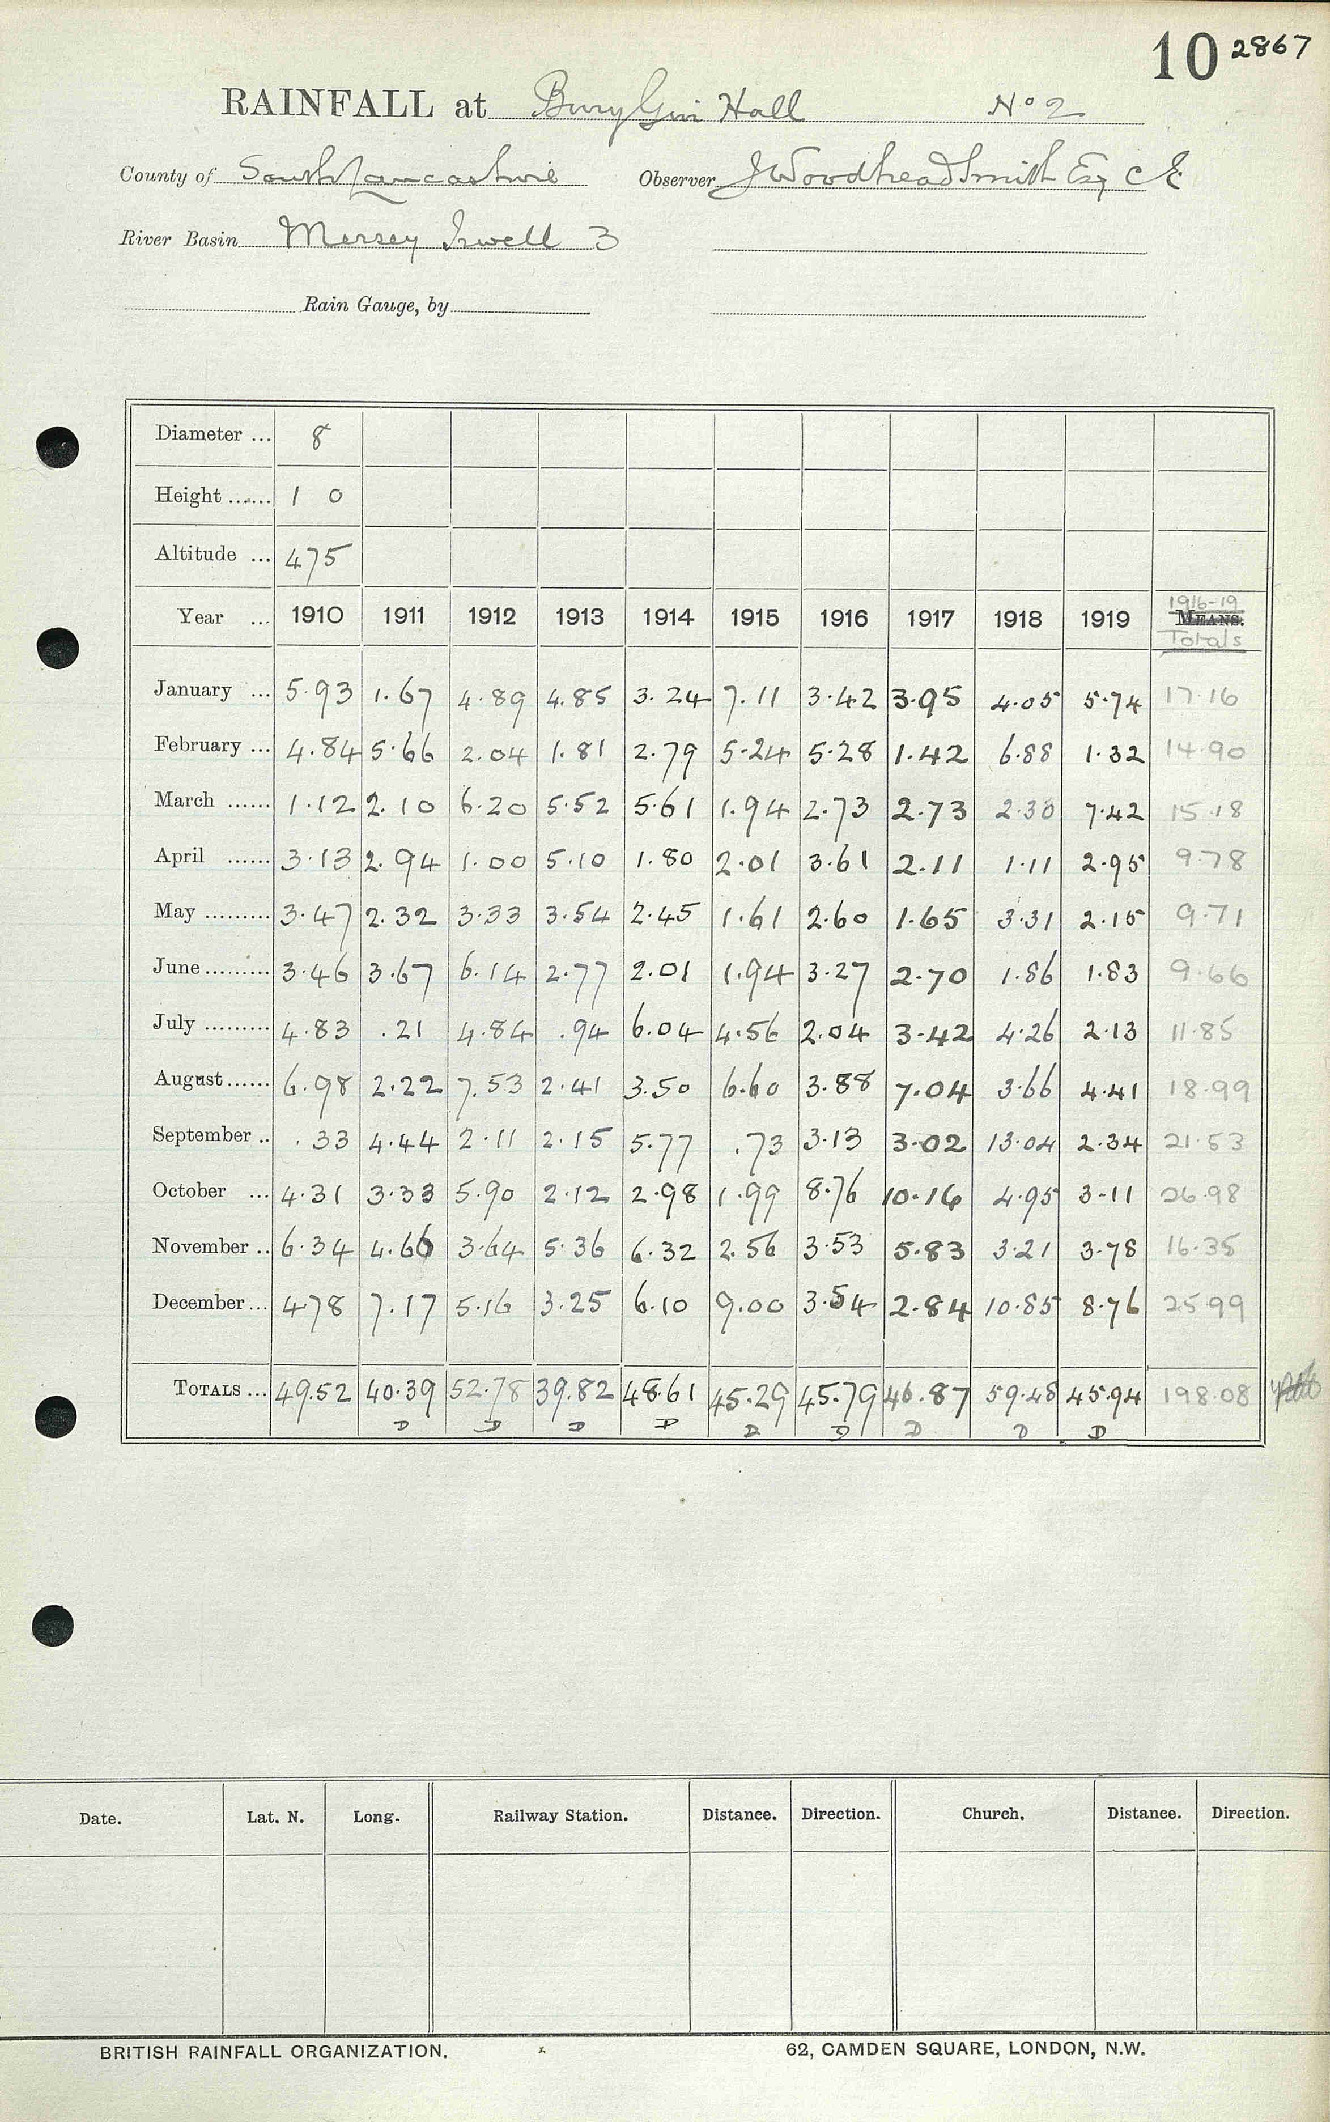 10 2867
RAINFALL at Bury Gin Hall No 2
County of South Lancashire Observer J Woodhead Smith Esq C E
River Basin Mersey Irwell 3
Rain Gauge, by
Diameter ... 8
Height ...... 1 0
Altitude ... 475
Year ... 1910 1911 1912 1913 1914 1915 1916 1917 1918 1919 1916-19 MEANS. Totals
January ... 5.93 1.67 4.89 4.85 3.24 7.11 3.42 3.95 4.05 5.74 17.16
February ... 4.84 5.66 2.04 1.81 2.79 5.24 5.28 1.42 6.88 1.32 14.90
March ...... 1.12 2.10 6.20 5.52 5.61 1.94 2.73 2.73 2.30 7.42 15.18
April ...... 3.13 2.94 1.00 5.10 1.80 2.01 3.61 2.11 1.11 2.95 9.78
May ......... 3.47 2.32 3.33 3.54 2.45 1.61 2.60 1.65 3.31 2.15 9.71
June ......... 3.46 3.67 6.14 2.77 2.01 1.94 3.27 2.70 1.86 1.83 9.66
July ......... 4.83 .21 4.84 .94 6.04 4.56 2.04 3.42 4.26 2.13 11.85
August ...... 6.98 2.22 7.53 2.41 3.50 6.60 3.88 7.04 3.66 4.41 18.99
September .. .33 4.44 2.11 2.15 5.77 .73 3.13 3.02 13.04 2.34 21.53
October ... 4.31 3.33 5.90 2.12 2.98 1.99 8.76 10.16 4.95 3.11 26.98
November .. 6.34 4.66 3.64 5.36 6.32 2.56 3.53 5.83 3.21 3.78 16.35
December ... 478 7.17 5.16 3.25 6.10 9.00 3.54 2.84 10.85 8.76 25.99
TOTALS ... 49.52 40.39 52.78 39.82 48.61 45.29 45.79 46.87 59.48 45.94 198.08
D D D D D D D D D
Date. Lat. N. Long. Railway Station. Distance. Direction. Church. Distance. Direction.
BRITISH RAINFALL ORGANIZATION. 62, CAMDEN SQUARE, LONDON, N.W.